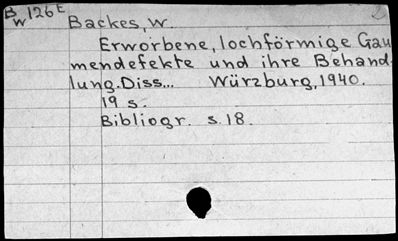 B/W 126 E
Backes, W.
Erworbene, lochförmige Gau
mendefekte und ihre Behand
lung. Diss... Würzburg, 1940.
19 s.
Bibliogr. s. 18.